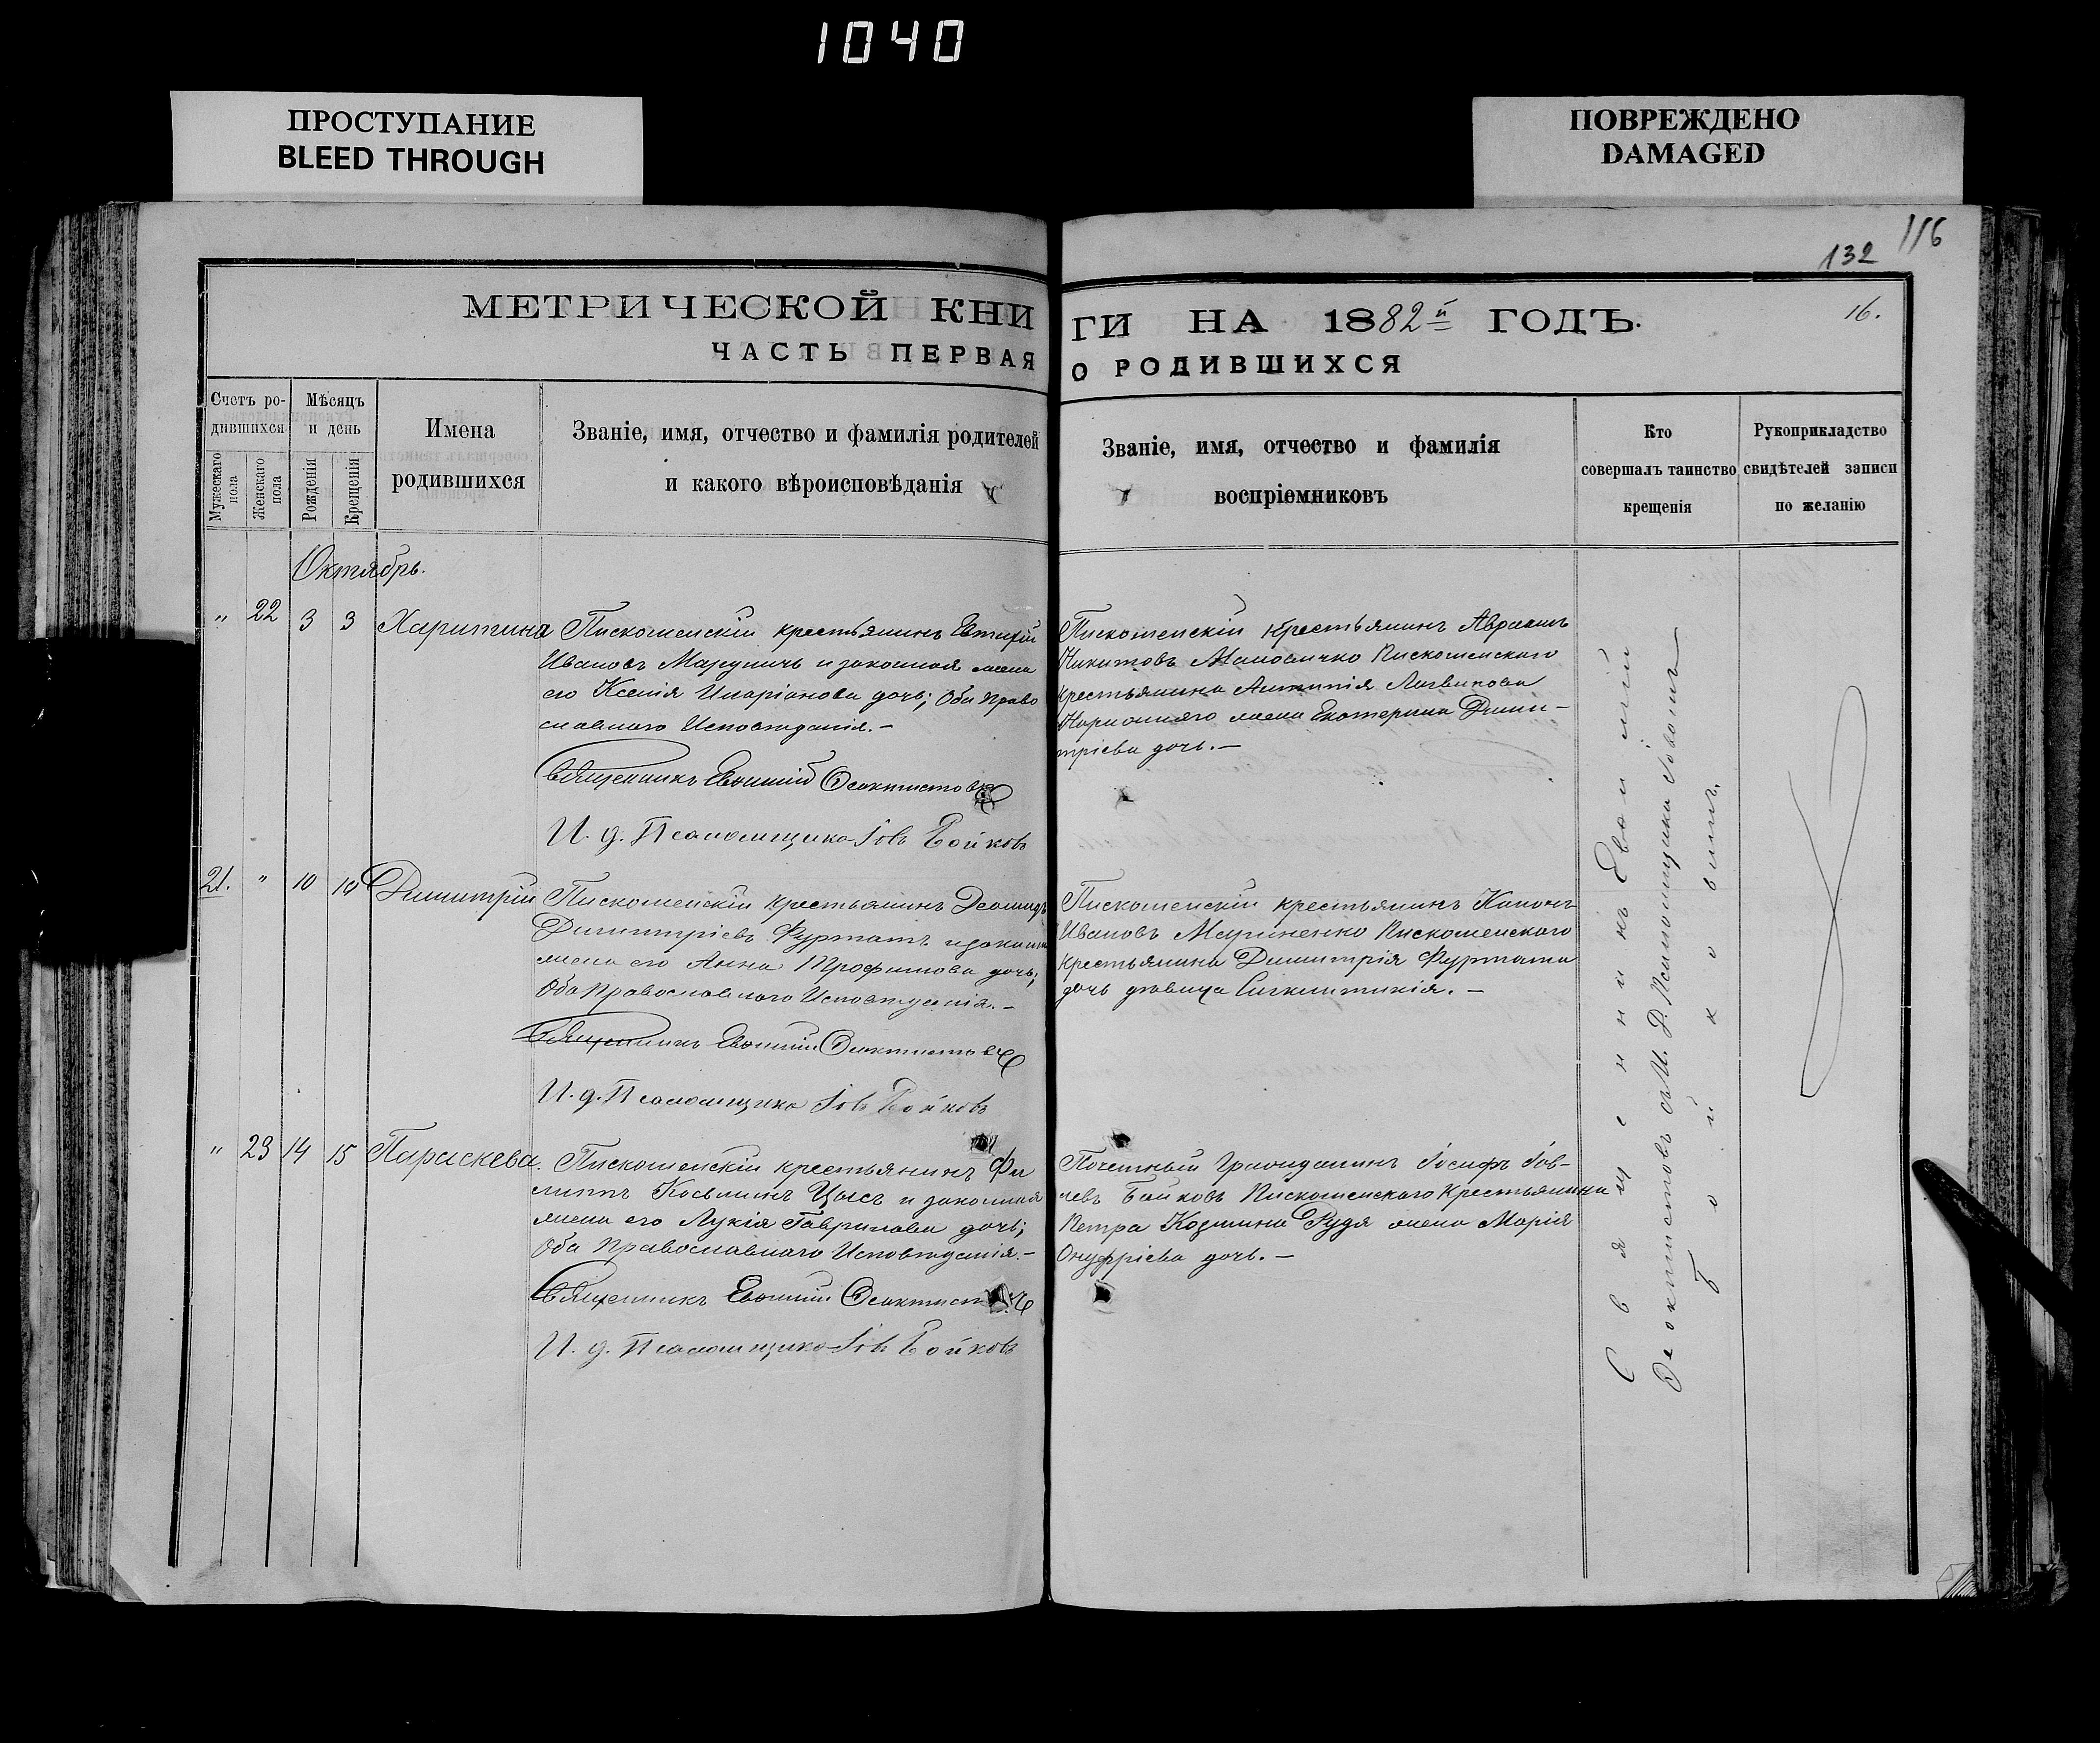 1040
ПРОСТУПАНИЕ
BLEED THROUGH
ПОВРЕЖДЕНО
DAMAGED
116
132
16.
МЕТРИЧЕСКОЙ КНИ
ГИ НА 1882й ГОДЪ.
ЧАСТЬ ПЕРВАЯ
О РОДИВШИХСЯ
Счетъ ро-
дившихся
Мужескаго пола
Женскаго пола
Мѣсяцъ
и день
Рожденія
Крещенія
Имена
родившихся
Званіе, имя, отчество и фамилія родителей
и какого вѣроисповѣданія
Званіе, имя, отчество и фамилія
воспріемниковъ
Кто
совершалъ таинство
крещенія
Рукоприкладство
свидѣтелей записи
по желанію
Октябрь.
" 22 3 3 Харитина
Пискошенскій крестьянинъ Евтихій
Ивановъ и законная жена
его Ксенія Иларіонова дочь; Оба Право
славнаго Исповѣданія.-
Священникъ Евфимій Феоктистовъ
И. д. Псаломщика Іовъ Бойковъ
Пискошенскій крестьянинъ Авраамъ
Никитовъ Пискошенскаго
крестьянина Антипія Логвинова
жена Екатерина Дими-
тріева дочь.-
21. " 10 10 Димитрій
Пискошенскій крестьянинъ Леонидъ
Димитріевъ Фурматъ и законная
жена его Анна Трофимова дочь;
Оба Православнаго Исповѣданія.-
Священникъ Евфимій Феоктистовъ
И. д. Псаломщика Іовъ Бойковъ
Пискошенскій крестьянинъ Кононъ
Ивановъ Мариненко Пискошенскаго
крестьянина Димитрія Фурмата
дочь дѣвица Сигклитикія.-
" 23 14 15 Параскева.
Пискошенскій крестьянинъ Фи
липпъ Косьминъ Цысъ и законная
жена его Лукія Гаврилова дочь;
Оба Православнаго Исповѣданія.-
Священникъ Евфимій Феоктистовъ
И. д. Псаломщика Іовъ Бойковъ
Почетный Гражданинъ Іосифъ Іов-
левъ Бойковъ Пискошенскаго Крестьянина
Петра Козмина Рудя жена Марія
Онуфріева дочь.-
Священникъ Евфимій
Феоктистовъ съ И. Д. Псаломщика Іовомъ
Бойковимъ.